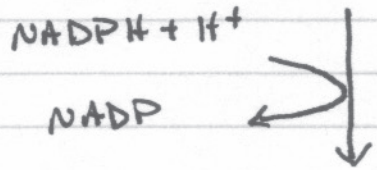 NADPH + H+
NADP